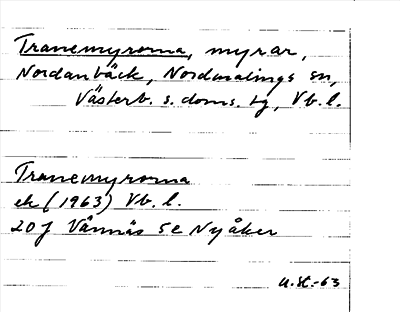 Tranemyrorna, myrar,
Nordanbäck, Nordmalings sn,
Västerb. s. doms. tg, Vb. l.
Tranemyrorna
ek (1963) Vb. l.
20 J Vännäs 5 e Nyåker
U.St.-63